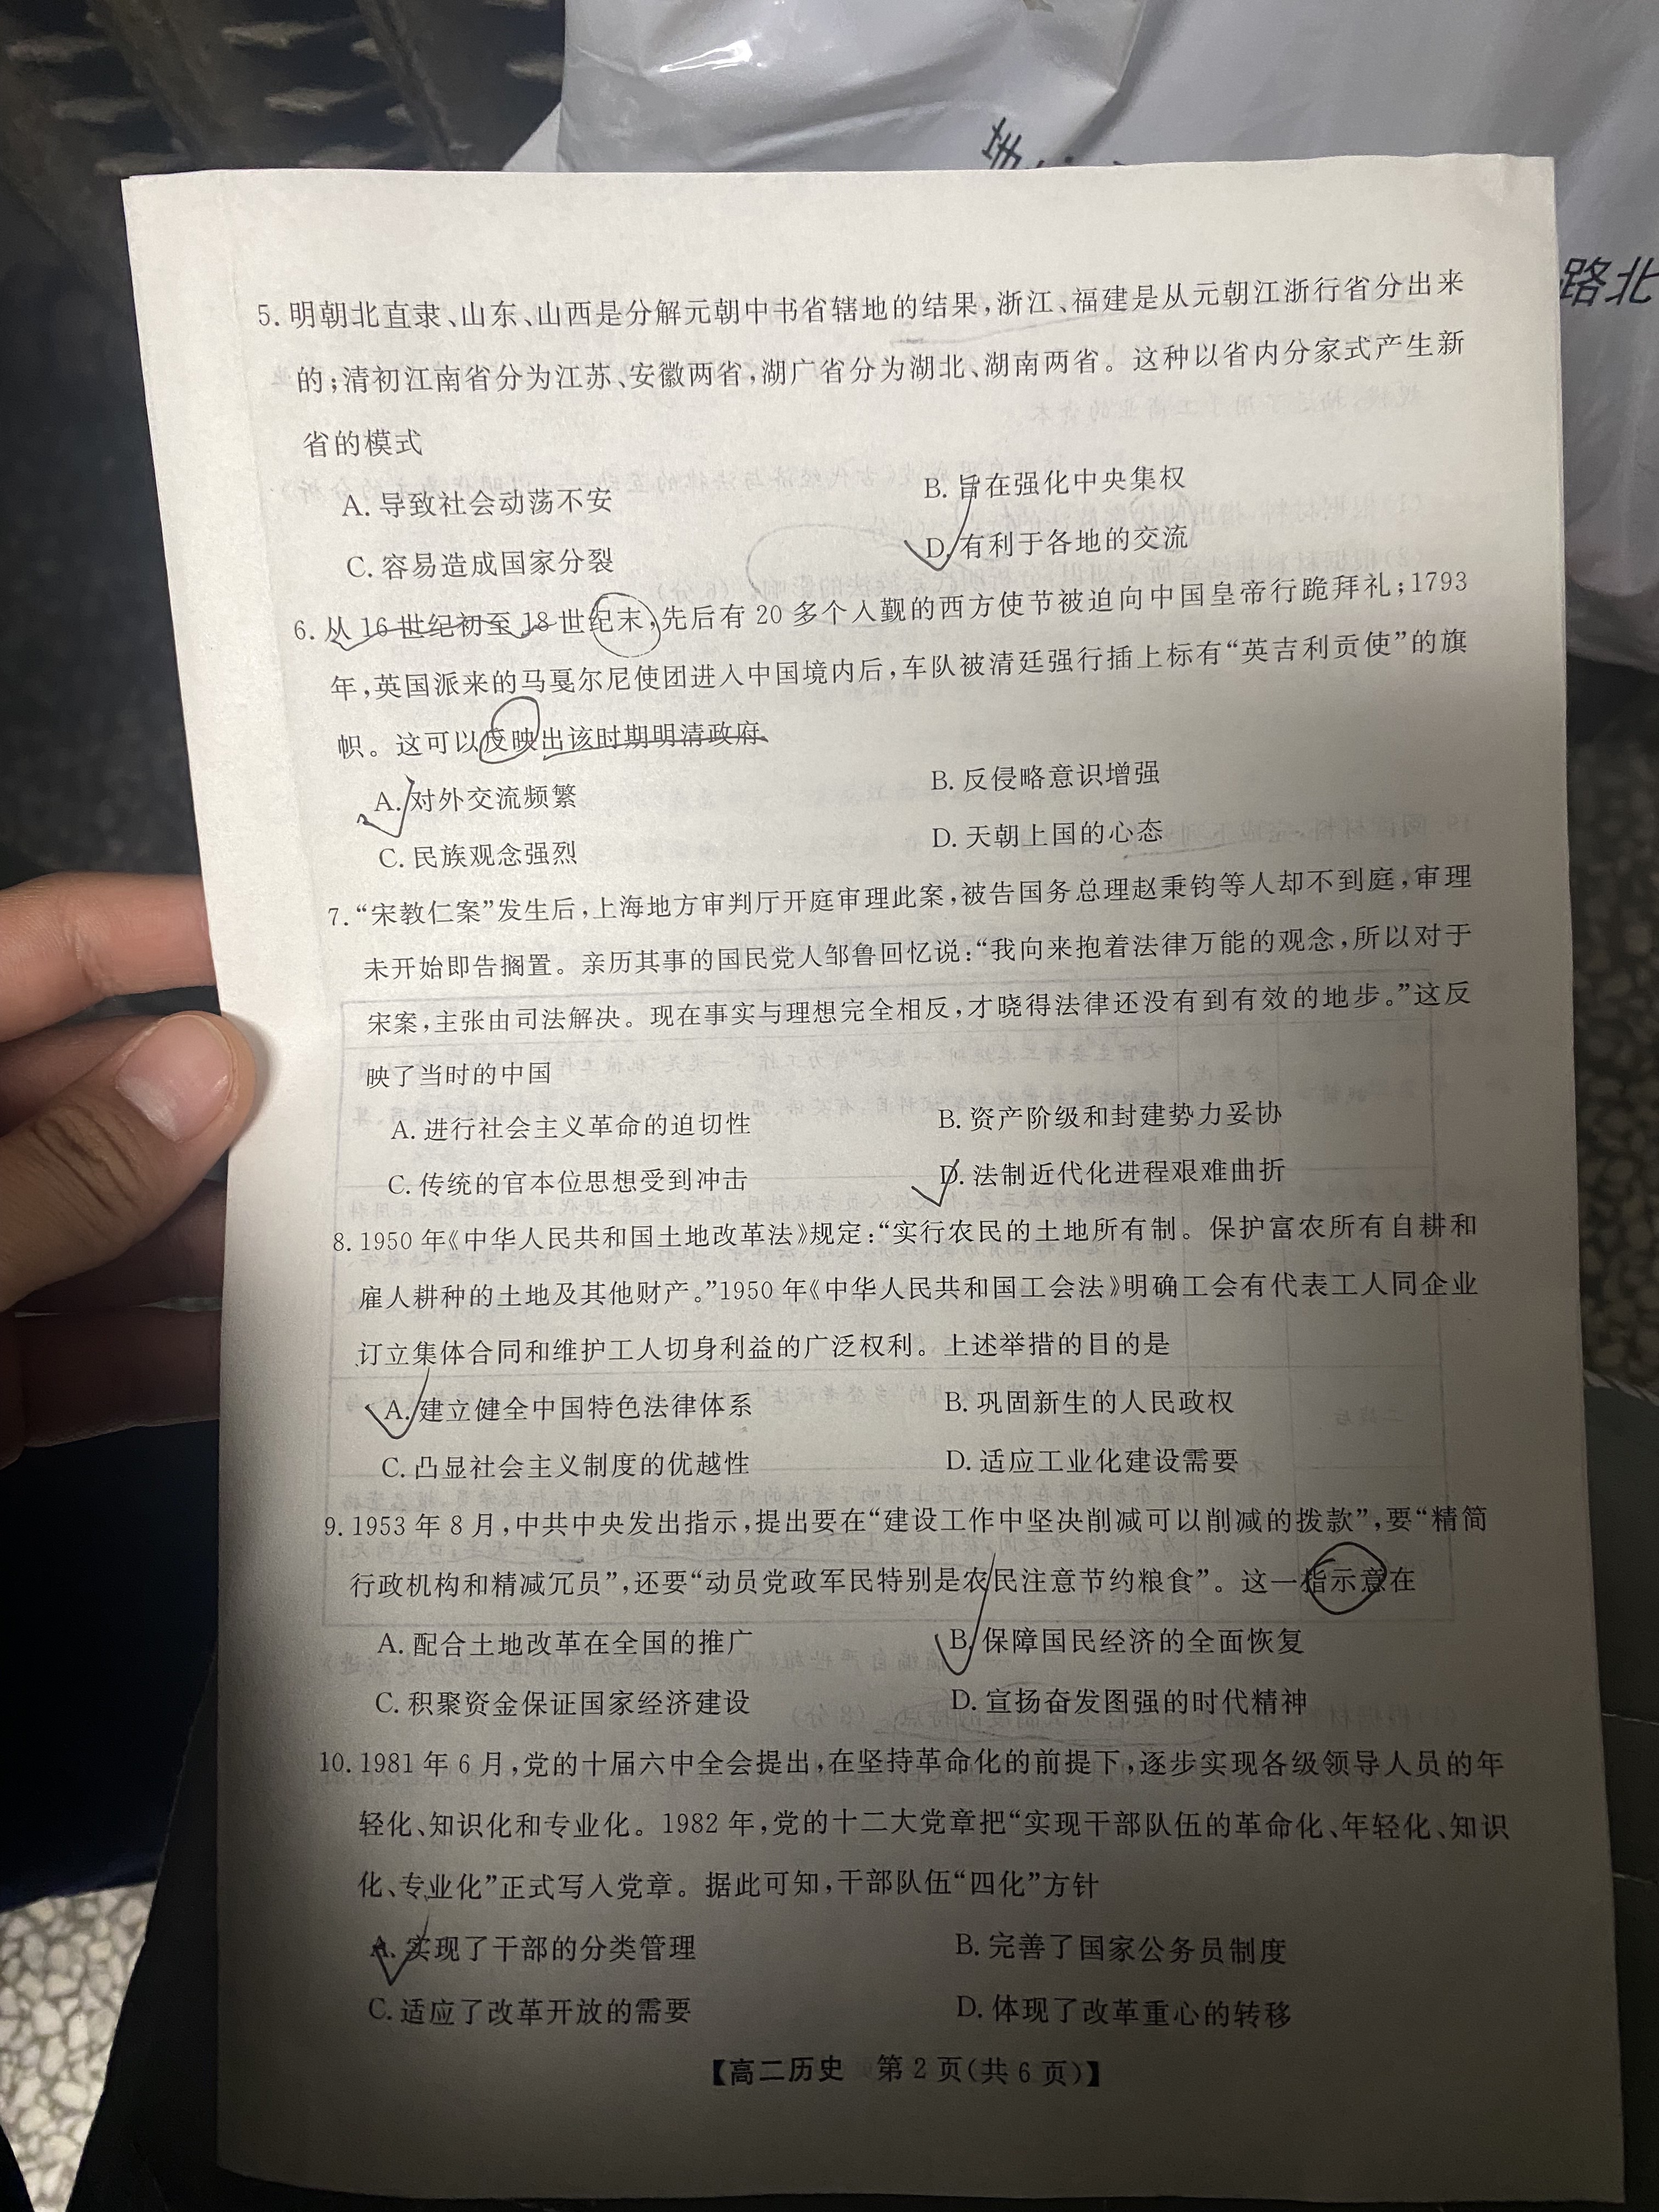 路北
5. 明朝北直隶、山东、山西是分解元朝中书省辖地的结果,浙江、福建是从元朝江浙行省分出来
的;清初江南省分为江苏、安徽两省,湖广省分为湖北、湖南两省。这种以省内分家式产生新
省的模式
A. 导致社会动荡不安
B. 旨在强化中央集权
C. 容易造成国家分裂
D. 有利于各地的交流
6. 从 16 世纪初至 18 世纪末,先后有 20 多个入觐的西方使节被迫向中国皇帝行跪拜礼;1793
年,英国派来的马戛尔尼使团进入中国境内后,车队被清廷强行插上标有“英吉利贡使”的旗
帜。这可以反映出该时期明清政府
A. 对外交流频繁
B. 反侵略意识增强
C. 民族观念强烈
D. 天朝上国的心态
7. “宋教仁案”发生后,上海地方审判厅开庭审理此案,被告国务总理赵秉钧等人却不到庭,审理
未开始即告搁置。亲历其事的国民党人邹鲁回忆说:“我向来抱着法律万能的观念,所以对于
宋案,主张由司法解决。现在事实与理想完全相反,才晓得法律还没有到有效的地步。”这反
映了当时的中国
A. 进行社会主义革命的迫切性
B. 资产阶级和封建势力妥协
C. 传统的官本位思想受到冲击
D. 法制近代化进程艰难曲折
8. 1950 年《中华人民共和国土地改革法》规定:“实行农民的土地所有制。保护富农所有自耕和
雇人耕种的土地及其他财产。”1950 年《中华人民共和国工会法》明确工会有代表工人同企业
订立集体合同和维护工人切身利益的广泛权利。上述举措的目的是
A. 建立健全中国特色法律体系
B. 巩固新生的人民政权
C. 凸显社会主义制度的优越性
D. 适应工业化建设需要
9. 1953 年 8 月,中共中央发出指示,提出要在“建设工作中坚决削减可以削减的拨款”,要“精简
行政机构和精减冗员”,还要“动员党政军民特别是农民注意节约粮食”。这一指示意在
A. 配合土地改革在全国的推广
B. 保障国民经济的全面恢复
C. 积聚资金保证国家经济建设
D. 宣扬奋发图强的时代精神
10. 1981 年 6 月,党的十届六中全会提出,在坚持革命化的前提下,逐步实现各级领导人员的年
轻化、知识化和专业化。1982 年,党的十二大党章把“实现干部队伍的革命化、年轻化、知识
化、专业化”正式写入党章。据此可知,干部队伍“四化”方针
A. 实现了干部的分类管理
B. 完善了国家公务员制度
C. 适应了改革开放的需要
D. 体现了改革重心的转移
【高二历史 第 2 页(共 6 页)】